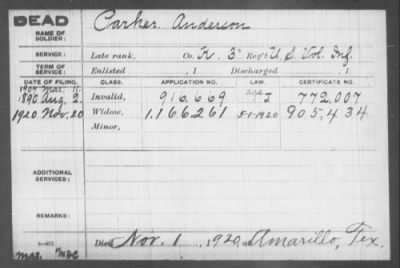 DEAD
NAME OF SOLDIER: Carker, Anderson
SERVICE: Late rank, Co. K. 3" Reg't U. S. Vol. Inf.
TERM OF SERVICE: Enlisted , 1 Discharged , 1
DATE OF FILING. CLASS. APPLICATION NO. LAW. CERTIFICATE NO.
1907 Mar. 11.
1890 Aug. 2. Invalid, 910,669 age I 772,007
1920 Nov. 20 Widow, 1,166,261 5-1-1920 905,434
Minor,
ADDITIONAL SERVICES:
REMARKS:
Died Nov. 1, 1920, at Amarillo, Tex.